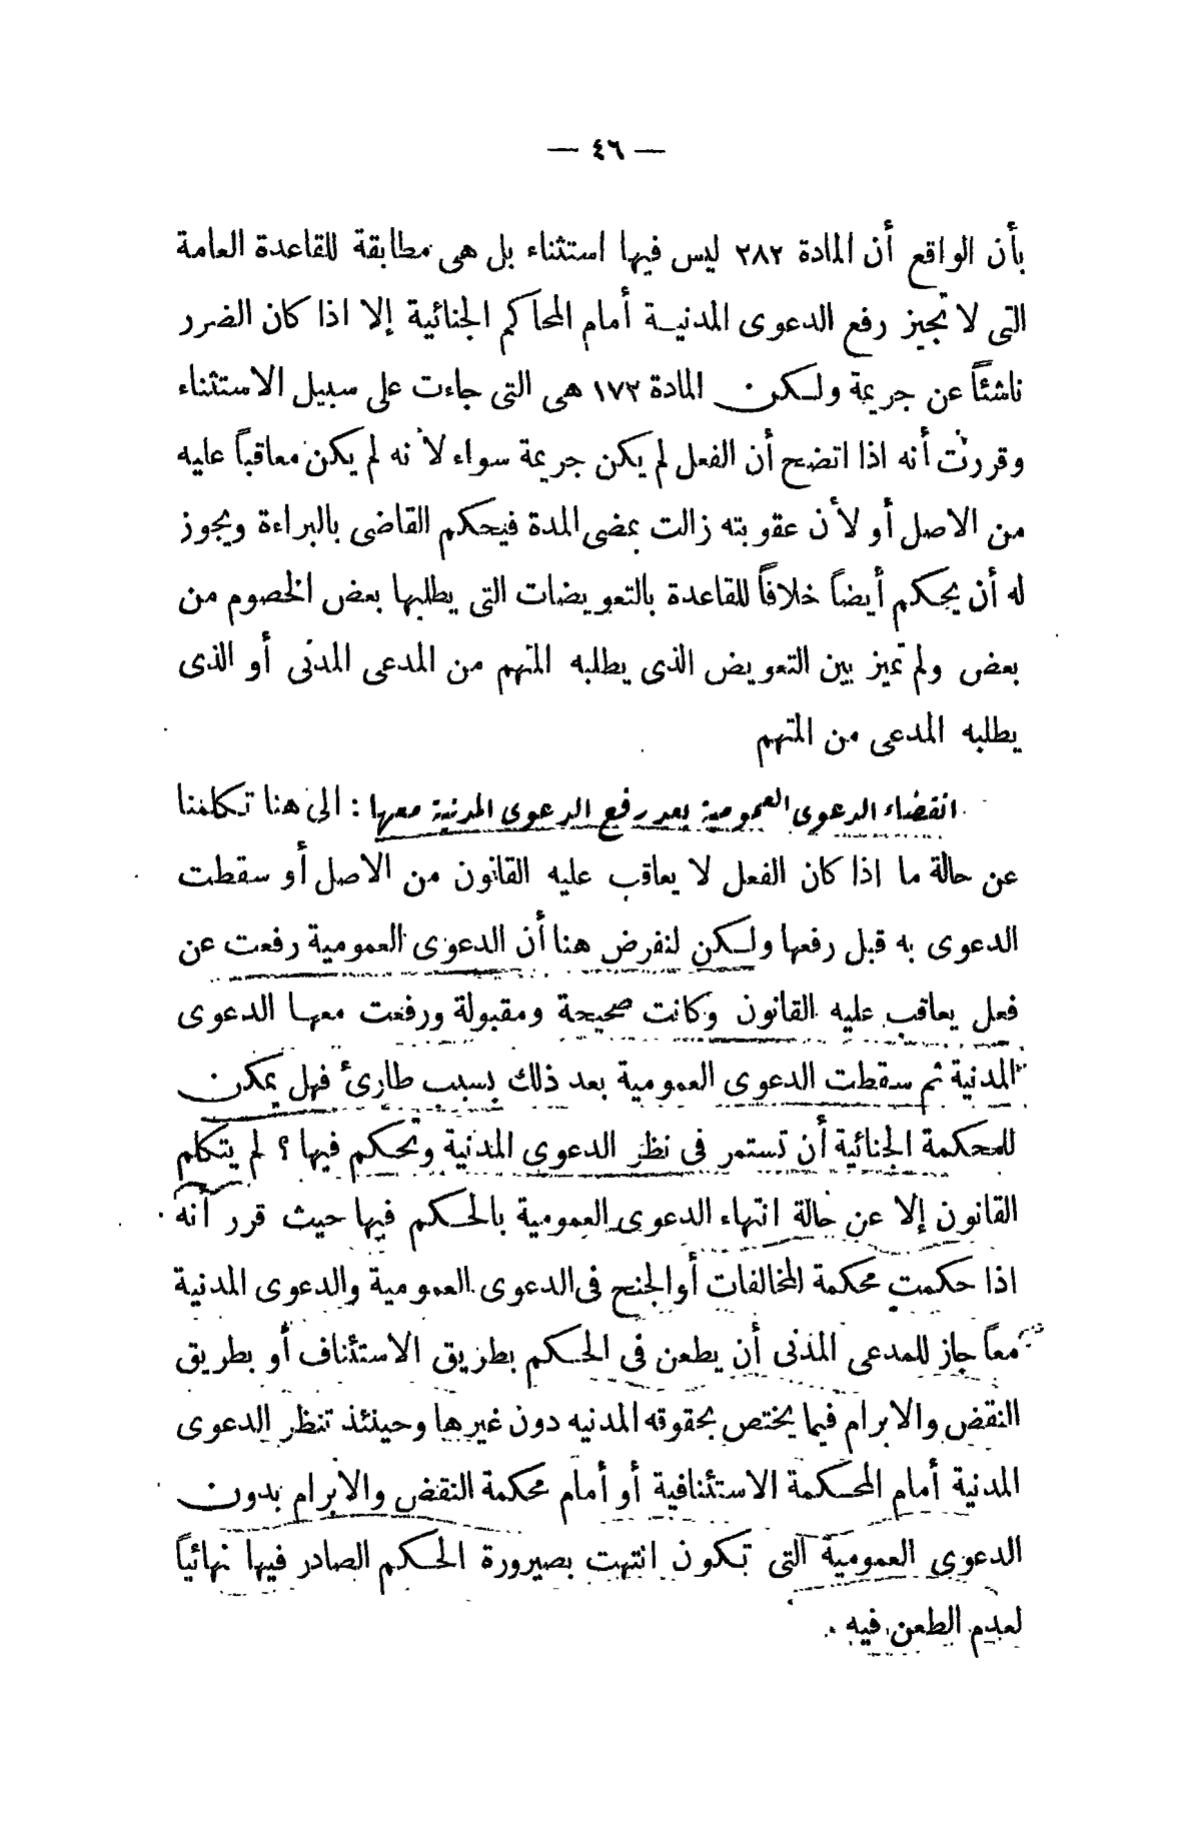 — ٤٦ —
بأن الواقع أن المادة ٢٨٢ ليس فيها استثناء بل هى مطابقة للقاعدة العامة
التى لا تجيز رفع الدعوى المدنية أمام المحاكم الجنائية إلا اذا كان الضرر
ناشئاً عن جريمة ولكن المادة ١٧٢ هى التى جاءت على سبيل الاستثناء
وقررت أنه اذا اتضح أن الفعل لم يكن جريمة سواء لأنه لم يكن معاقباً عليه
من الاصل أو لأن عقوبته زالت بمضى المدة فيحكم القاضى بالبراءة ويجوز
له أن يحكم أيضاً خلافاً للقاعدة بالتعويضات التى يطلبها بعض الخصوم من
بعض ولم تميز بين التعويض الذى يطلبه المتهم من المدعى المدنى أو الذى
يطلبه المدعى من المتهم
انقضاء الدعوى العمومية بعد رفع الدعوى المدنية معها : الى هنا تكلمنا
عن حالة ما اذا كان الفعل لا يعاقب عليه القانون من الاصل أو سقطت
الدعوى به قبل رفعها ولكن لنفرض هنا أن الدعوى العمومية رفعت عن
فعل يعاقب عليه القانون وكانت صحيحة ومقبولة ورفعت معها الدعوى
المدنية ثم سقطت الدعوى العمومية بعد ذلك بسبب طارئ فهل يمكن
للمحكمة الجنائية أن تستمر فى نظر الدعوى المدنية وتحكم فيها ؟ لم يتكلم
القانون إلا عن حالة انتهاء الدعوى العمومية بالحكم فيها حيث قرر أنه
اذا حكمت محكمة المخالفات أو الجنح فى الدعوى العمومية والدعوى المدنية
معاً جاز للمدعى المدنى أن يطعن فى الحكم بطريق الاستئناف أو بطريق
النقض والابرام فيما يختص بحقوقه المدنيه دون غيرها وحينئذ تنظر الدعوى
المدنية أمام المحكمة الاستئنافية أو أمام محكمة النقض والابرام بدون
الدعوى العمومية التى تكون انتهت بصيرورة الحكم الصادر فيها نهائياً
لعدم الطعن فيه .